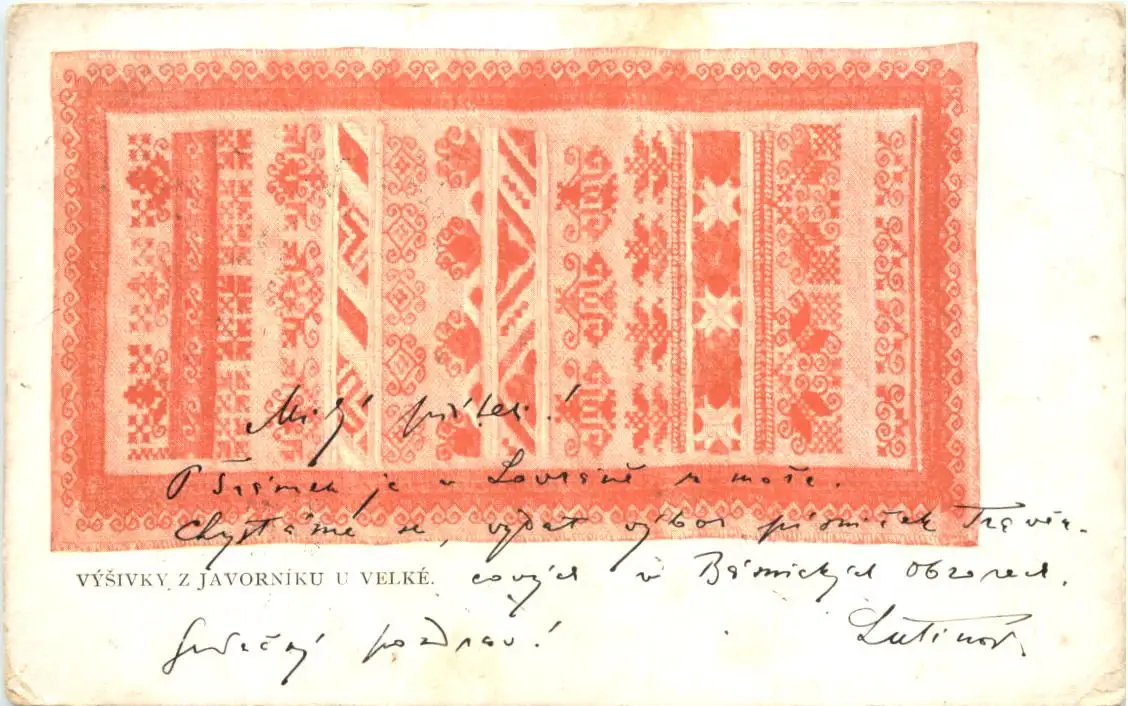 Milý příteli!
P. Šrámek je v Lovraně u moře.
Chystáme se vydat výbor písniček Travěn-
VÝŠIVKY Z JAVORNÍKU U VELKÉ.
cových v Básnických Obzorech.
Srdečný pozdrav!
Lutinov